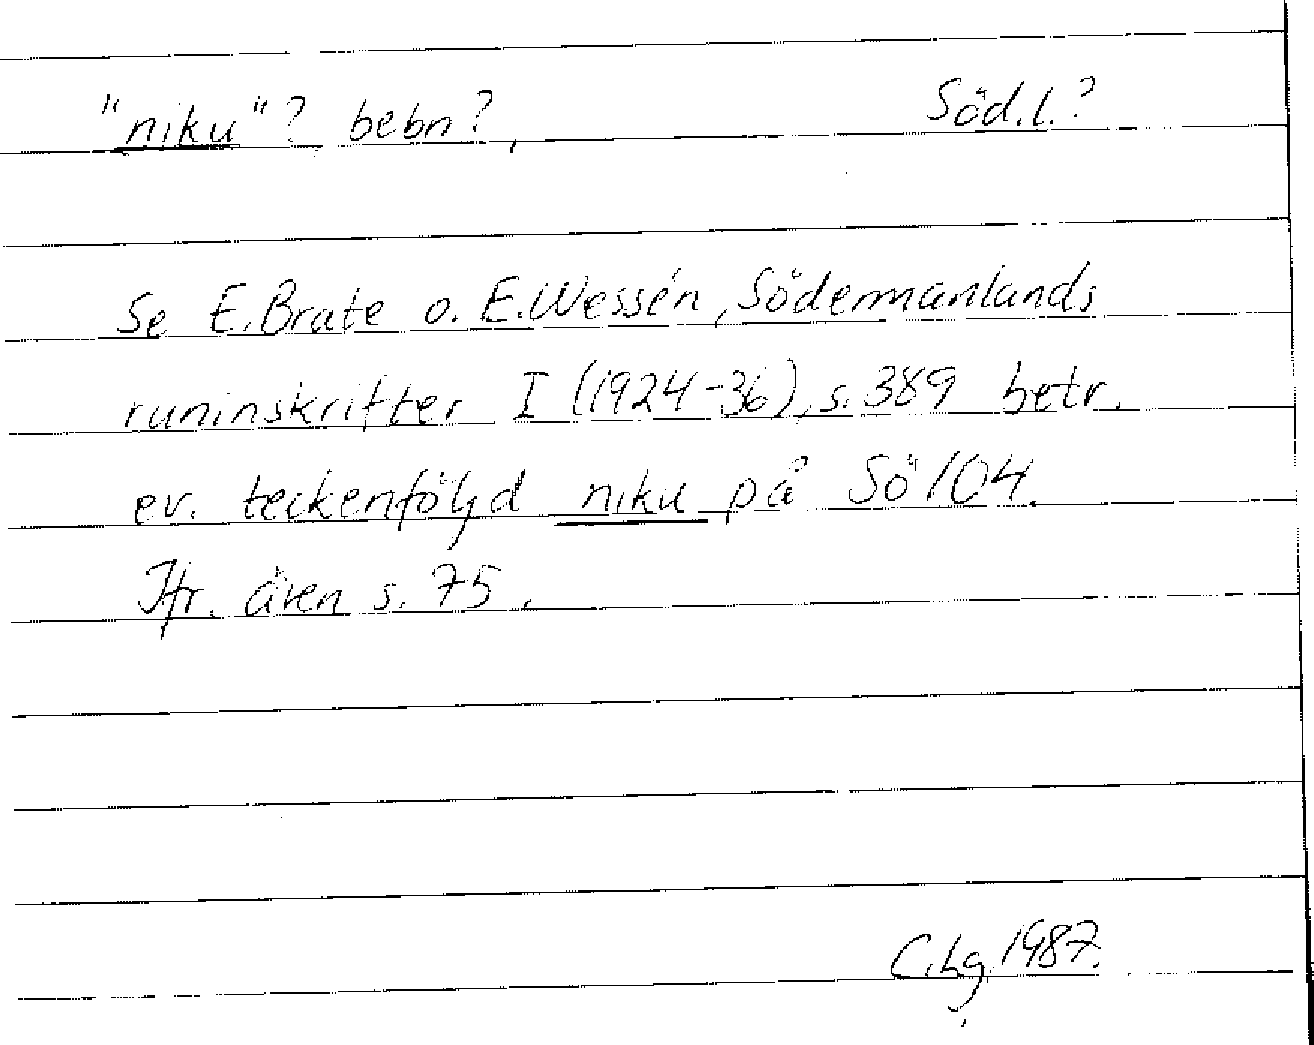 "niku"? bebn?, Söd.l.?
Se E. Brate o. E. Wessén, Södermanlands
runinskrifter I (1924-36), s. 389 betr.
ev. teckenföljd niku på Sö 104.
Jfr. även s. 75.
C.Lg. 1987.